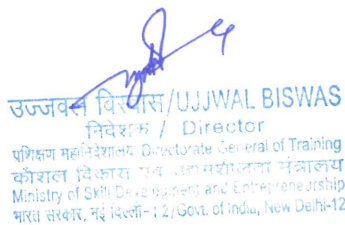 उज्जवल विस्वास/UJJWAL BISWAS
निदेशक / Director
प्रशिक्षण महानिदेशालय/Directorate General of Training
कौशल विकास एवं उद्यमशीलता मंत्रालय
Ministry of Skill Development and Entrepreneurship
भारत सरकार, नई दिल्ली-12/Govt. of India, New Delhi-12